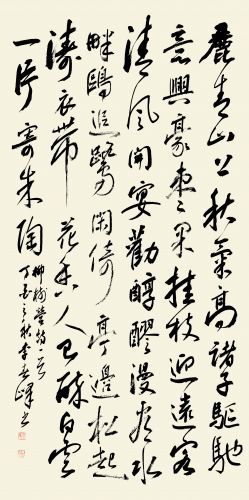 麗青山秋氣高諸子驅馳
意興豪枣果挂枝迎遠客
清風開宴勸醇醪漫看水
畔鷗追鷺閑倚亭邊松起
濤衣帶花香人已醉白雲
一片寄朱陶
柳榆營詩一首
丁亥之秋李春峰書